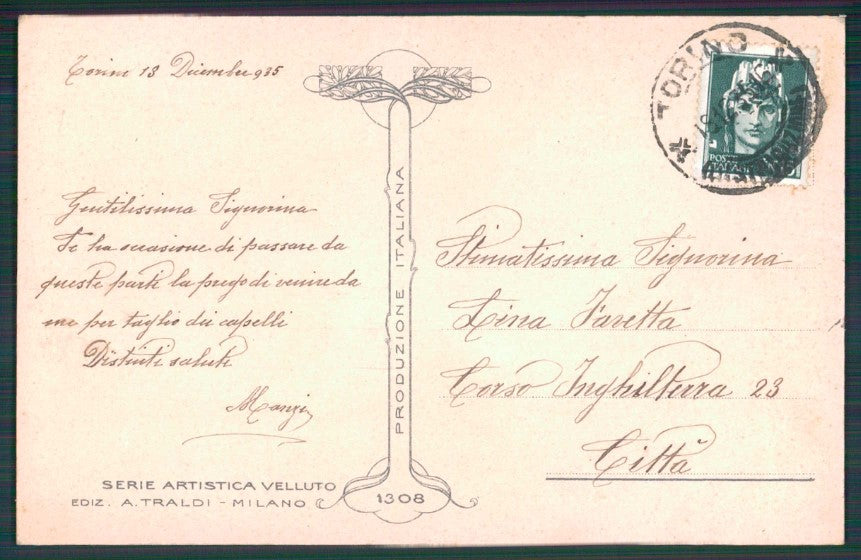 Torino 13 Dicembre 935
Gentilissima Signorina
Se ha occasione di passare da
queste parti la prego di venire da
me per taglio dei capelli
Distinti saluti
Manzi
SERIE ARTISTICA VELLUTO
EDIZ. A. TRALDI - MILANO
PRODUZIONE ITALIANA
1308
TORINO
POSTE
ITALIANE
Stimatissima Signorina
Lina Faretta
Corso Inghilterra 23
Città